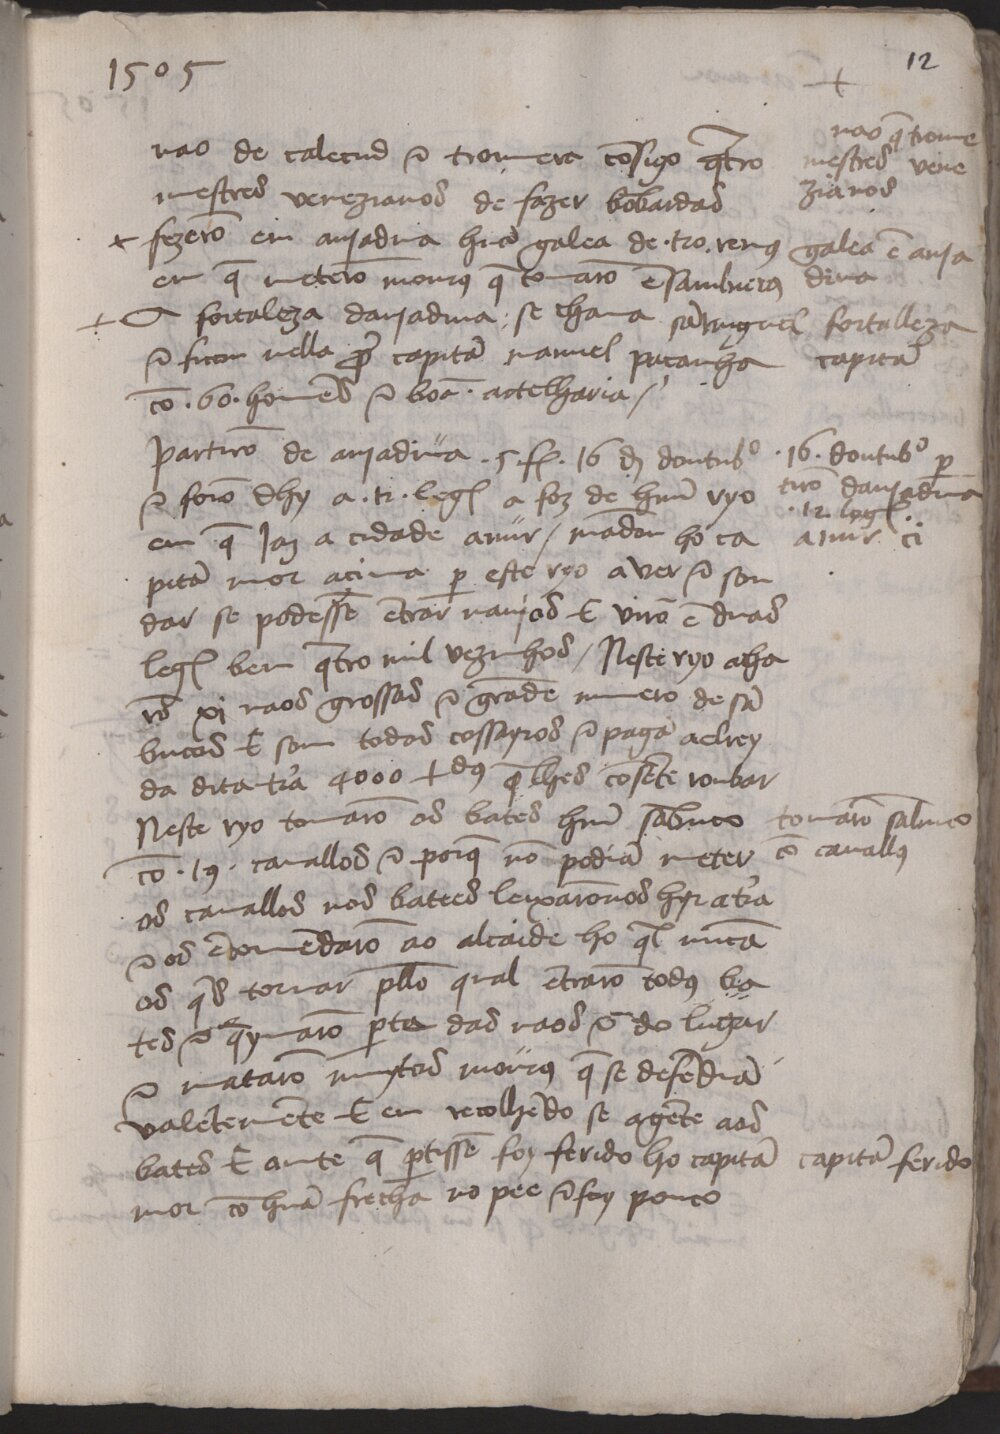 1505
12
nao de calecud e trouuera cõsigo q̃tro
mestres venezianos de fazer bõbardas
fezerõ em anjadiua hũa galea de .tro. remos
em q̃ meterõ mouros q̃ tomarõ ẽ sambucos
A fortaleza danjadiua se chama sã miguel
e ficou nella por capitã manuel paçanha
cõ .60. homẽs e boa artelharia /
Partirõ de anjadiua .5. fr. 16 doutubº
e forõ dhy a .12. legˢ a foz de hũ ryo
em q̃ jaz a cidade anur / mãdou ho ca
pitã mor acima per este ryo a ver e son
dar se podessẽ ẽtrar nauios E virõ ẽ duas
legˢ bem q̃tro mil vezinhos / Neste ryo acha
rõ xj naos grossas e grãde numero de sã
bucos E som todas cossayros e pagã a elrey
da dita tr̃a 4000 +dos q̃ lhes cõsẽte roubar
Neste ryo tomarõ os bates hũ sãbuco
cõ .19. cauallos e porq̃ nõ podiã meter
os cauallos nos batees leixarõnos hy a tr̃a
e os ẽcomẽdarõ ao alcaide ho q̃l nũca
os q̃s tornar pello qual ẽtrarõ todos ba
tes e q̃ymarõ parte das naos e do lugar
e matarõ muytos mouros q̃ se defẽdiã
valẽtemẽte E em recolhẽdo se a gẽte aos
bates E ante q̃ partissẽ foy ferido ho capitã
mor cõ hũa frecha no pee e foy pouco
nao q̃ trouue
mestres vene
zianos
galea ẽ anja
diua
fortalleza
capitã
.16. doutubº par
tirõ danjadiua
.12. legˢ.
anur ci
tomarõ sãbuco
cõ cauallos
capitã ferido